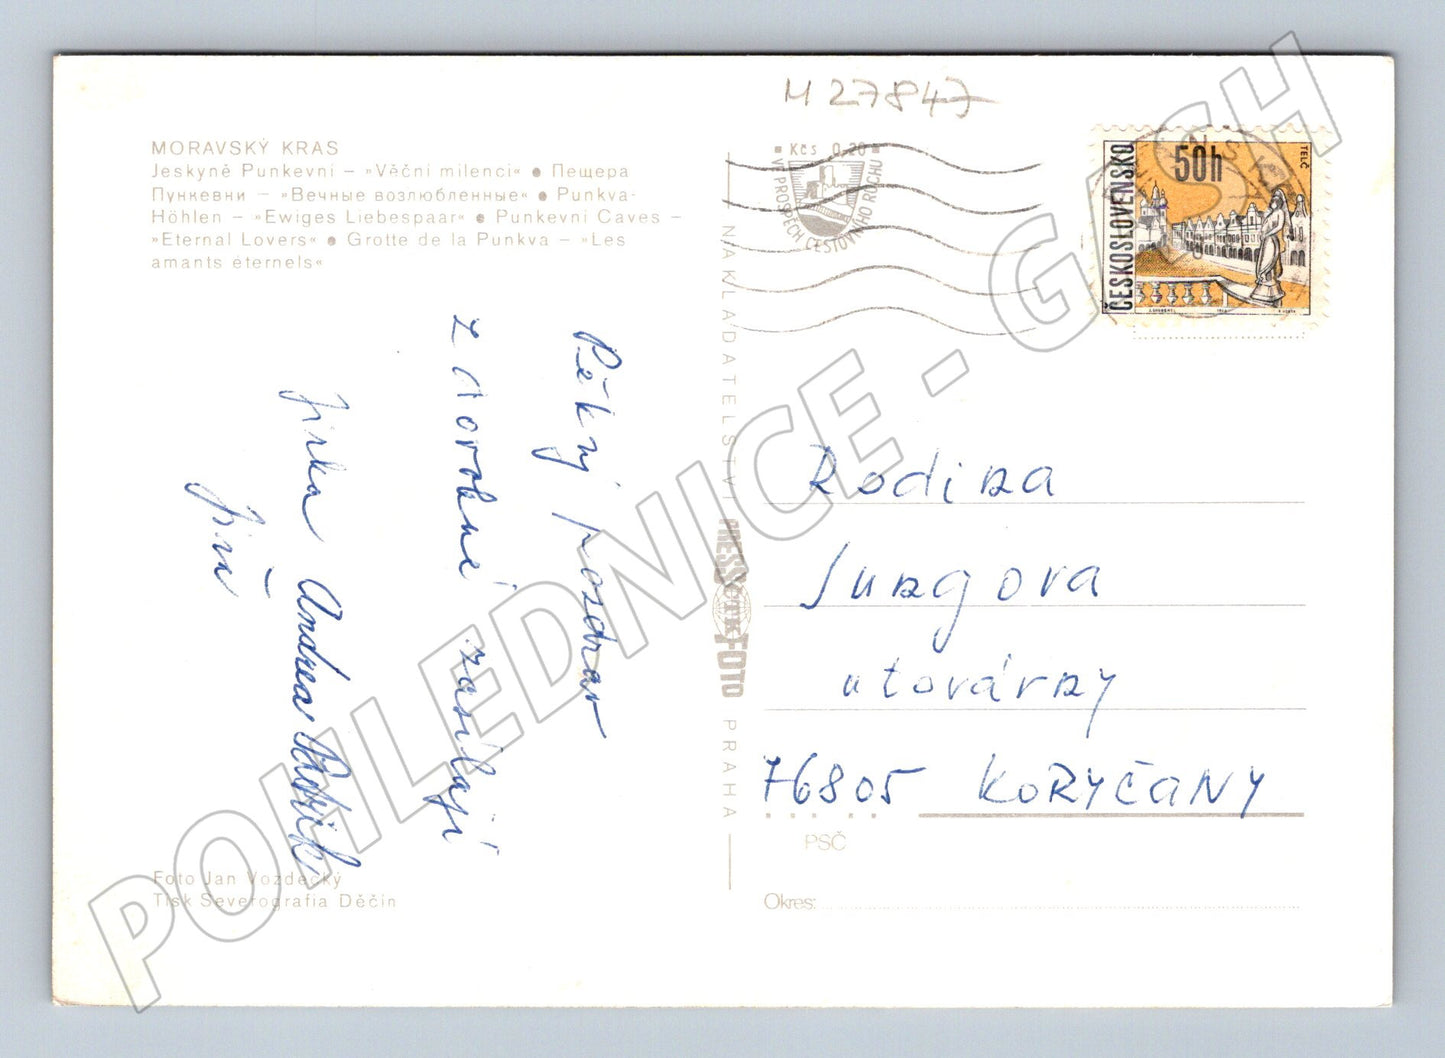 M 27847
MORAVSKÝ KRAS
Jeskyně Punkevní – »Věční milenci« ● Пещера
Пункевни – »Вечные возлюбленные« ● Punkva-
Höhlen – »Ewiges Liebespaar« ● Punkevni Caves –
»Eternal Lovers« ● Grotte de la Punkva – »Les
amants éternels«
Kčs 0,20
VE PROSPĚCH CESTOVNÍHO RUCHU
ČESKOSLOVENSKO
50h
TELČ
Pěkný pozdrav
z dovolené zasílají
Jirka Andrea
Jiří
NAKLADATELSTVÍ PRESSFOTO PRAHA
Rodina
Jurgova
u továrny
76805 KORYČANY
PSČ
Okres:
Foto Jan Vozdecký
Tisk Severografia Děčín
POHLEDNICE - GASH